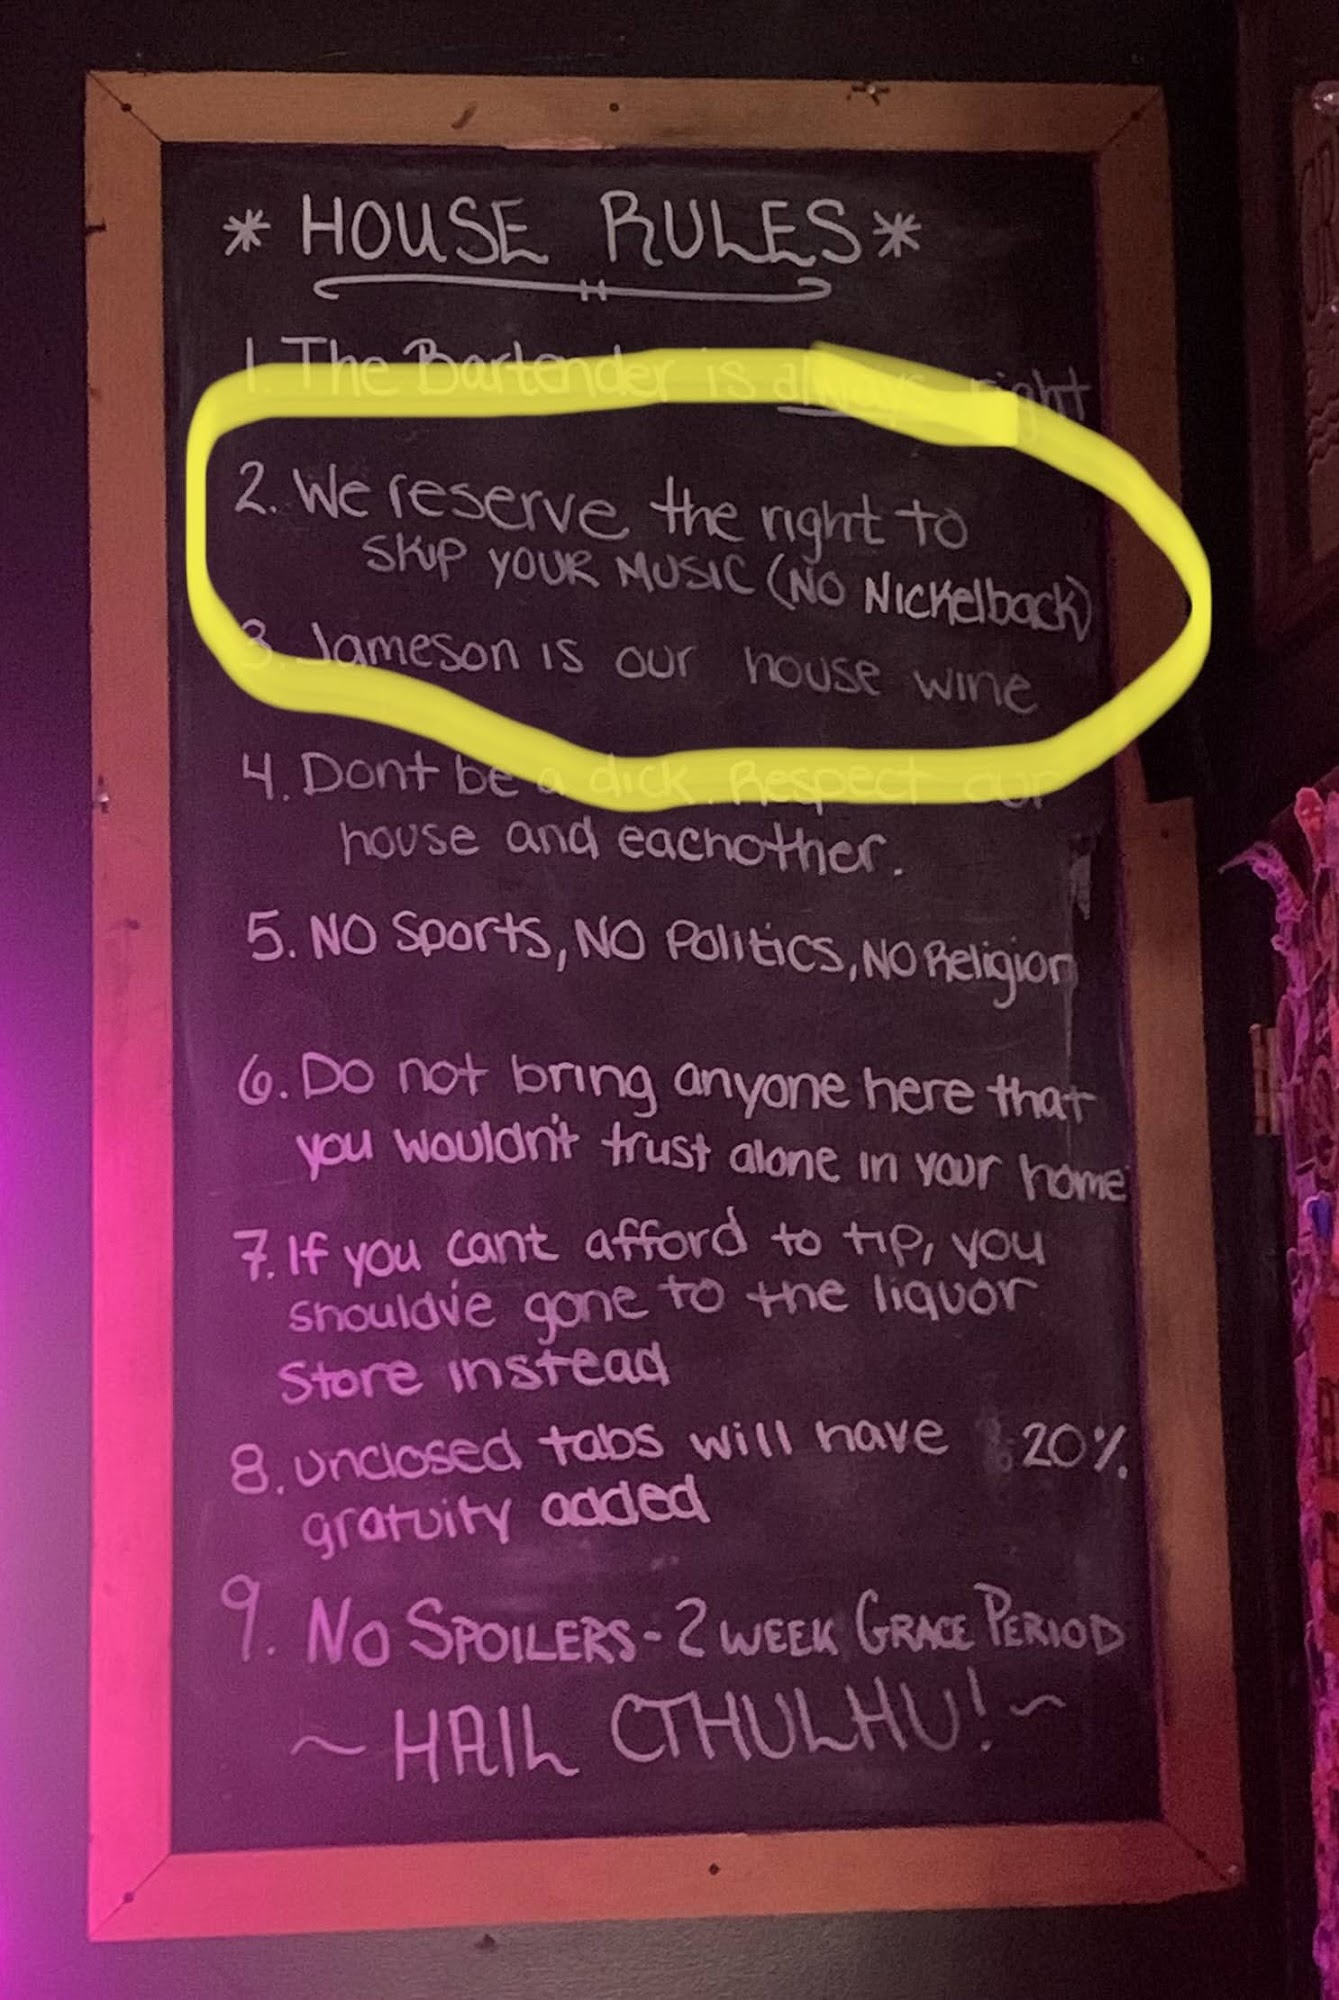 * HOUSE RULES *
1. The Bartender is always right
2. We reserve the right to
SKIP YOUR MUSIC (NO NICKelback)
3. Jameson is our house wine
4. Dont be a dick. Respect our
house and eachother.
5. NO Sports, NO Politics, NO Religion
6. Do not bring anyone here that
you wouldn't trust alone in your home
7. If you cant afford to tip, you
shouldv'e gone to the liquor
Store instead
8. unclosed tabs will have 20%
gratuity added
9. NO SPOILERS - 2 WEEK GRACE PERIOD
~ HAIL CTHULHU! ~